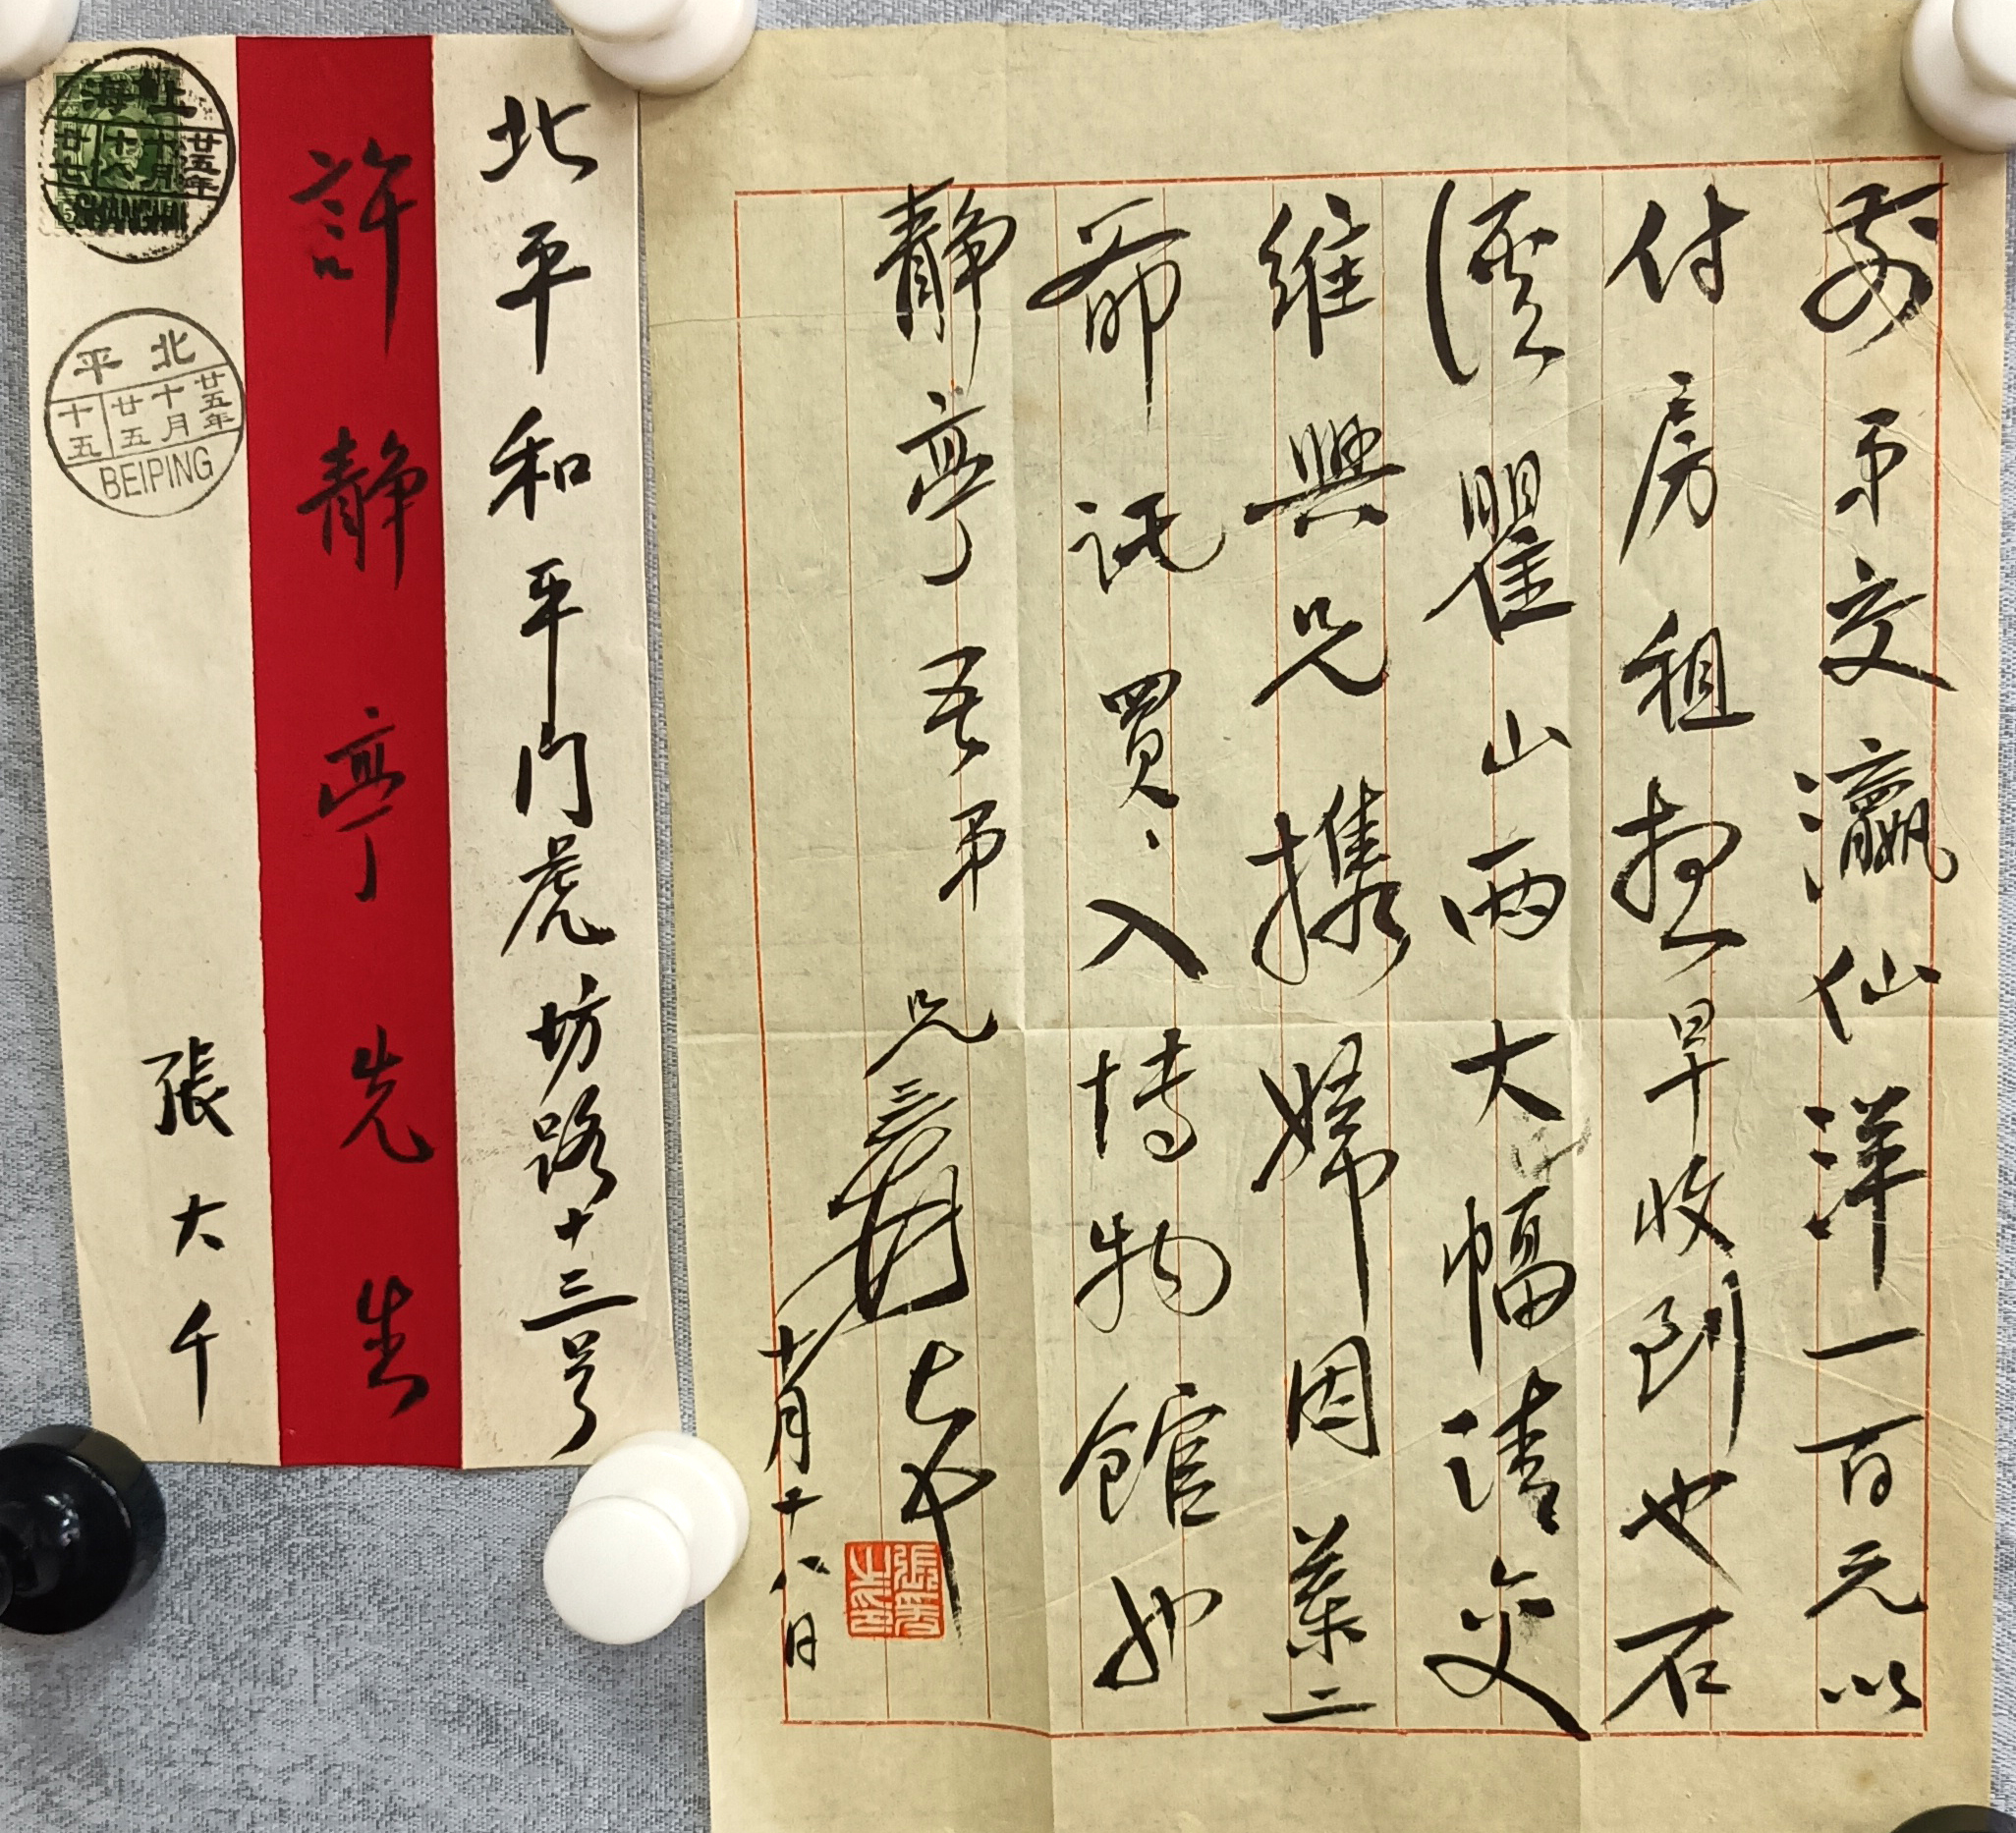 前示交瀛仙洋一百元以
付房租想早收到也石
溪瞿山兩大幅请交
维興兄攜歸因葉二
爺託買、入博物館也
静亭吾弟
兄爰
十月十八日
北平和平门虎坊路十三号
許静亭先生
張大千
上海
廿五年
十月
十八
廿七
SHANGHAI
北平
廿五年
十月
廿五
十五
BEIPING